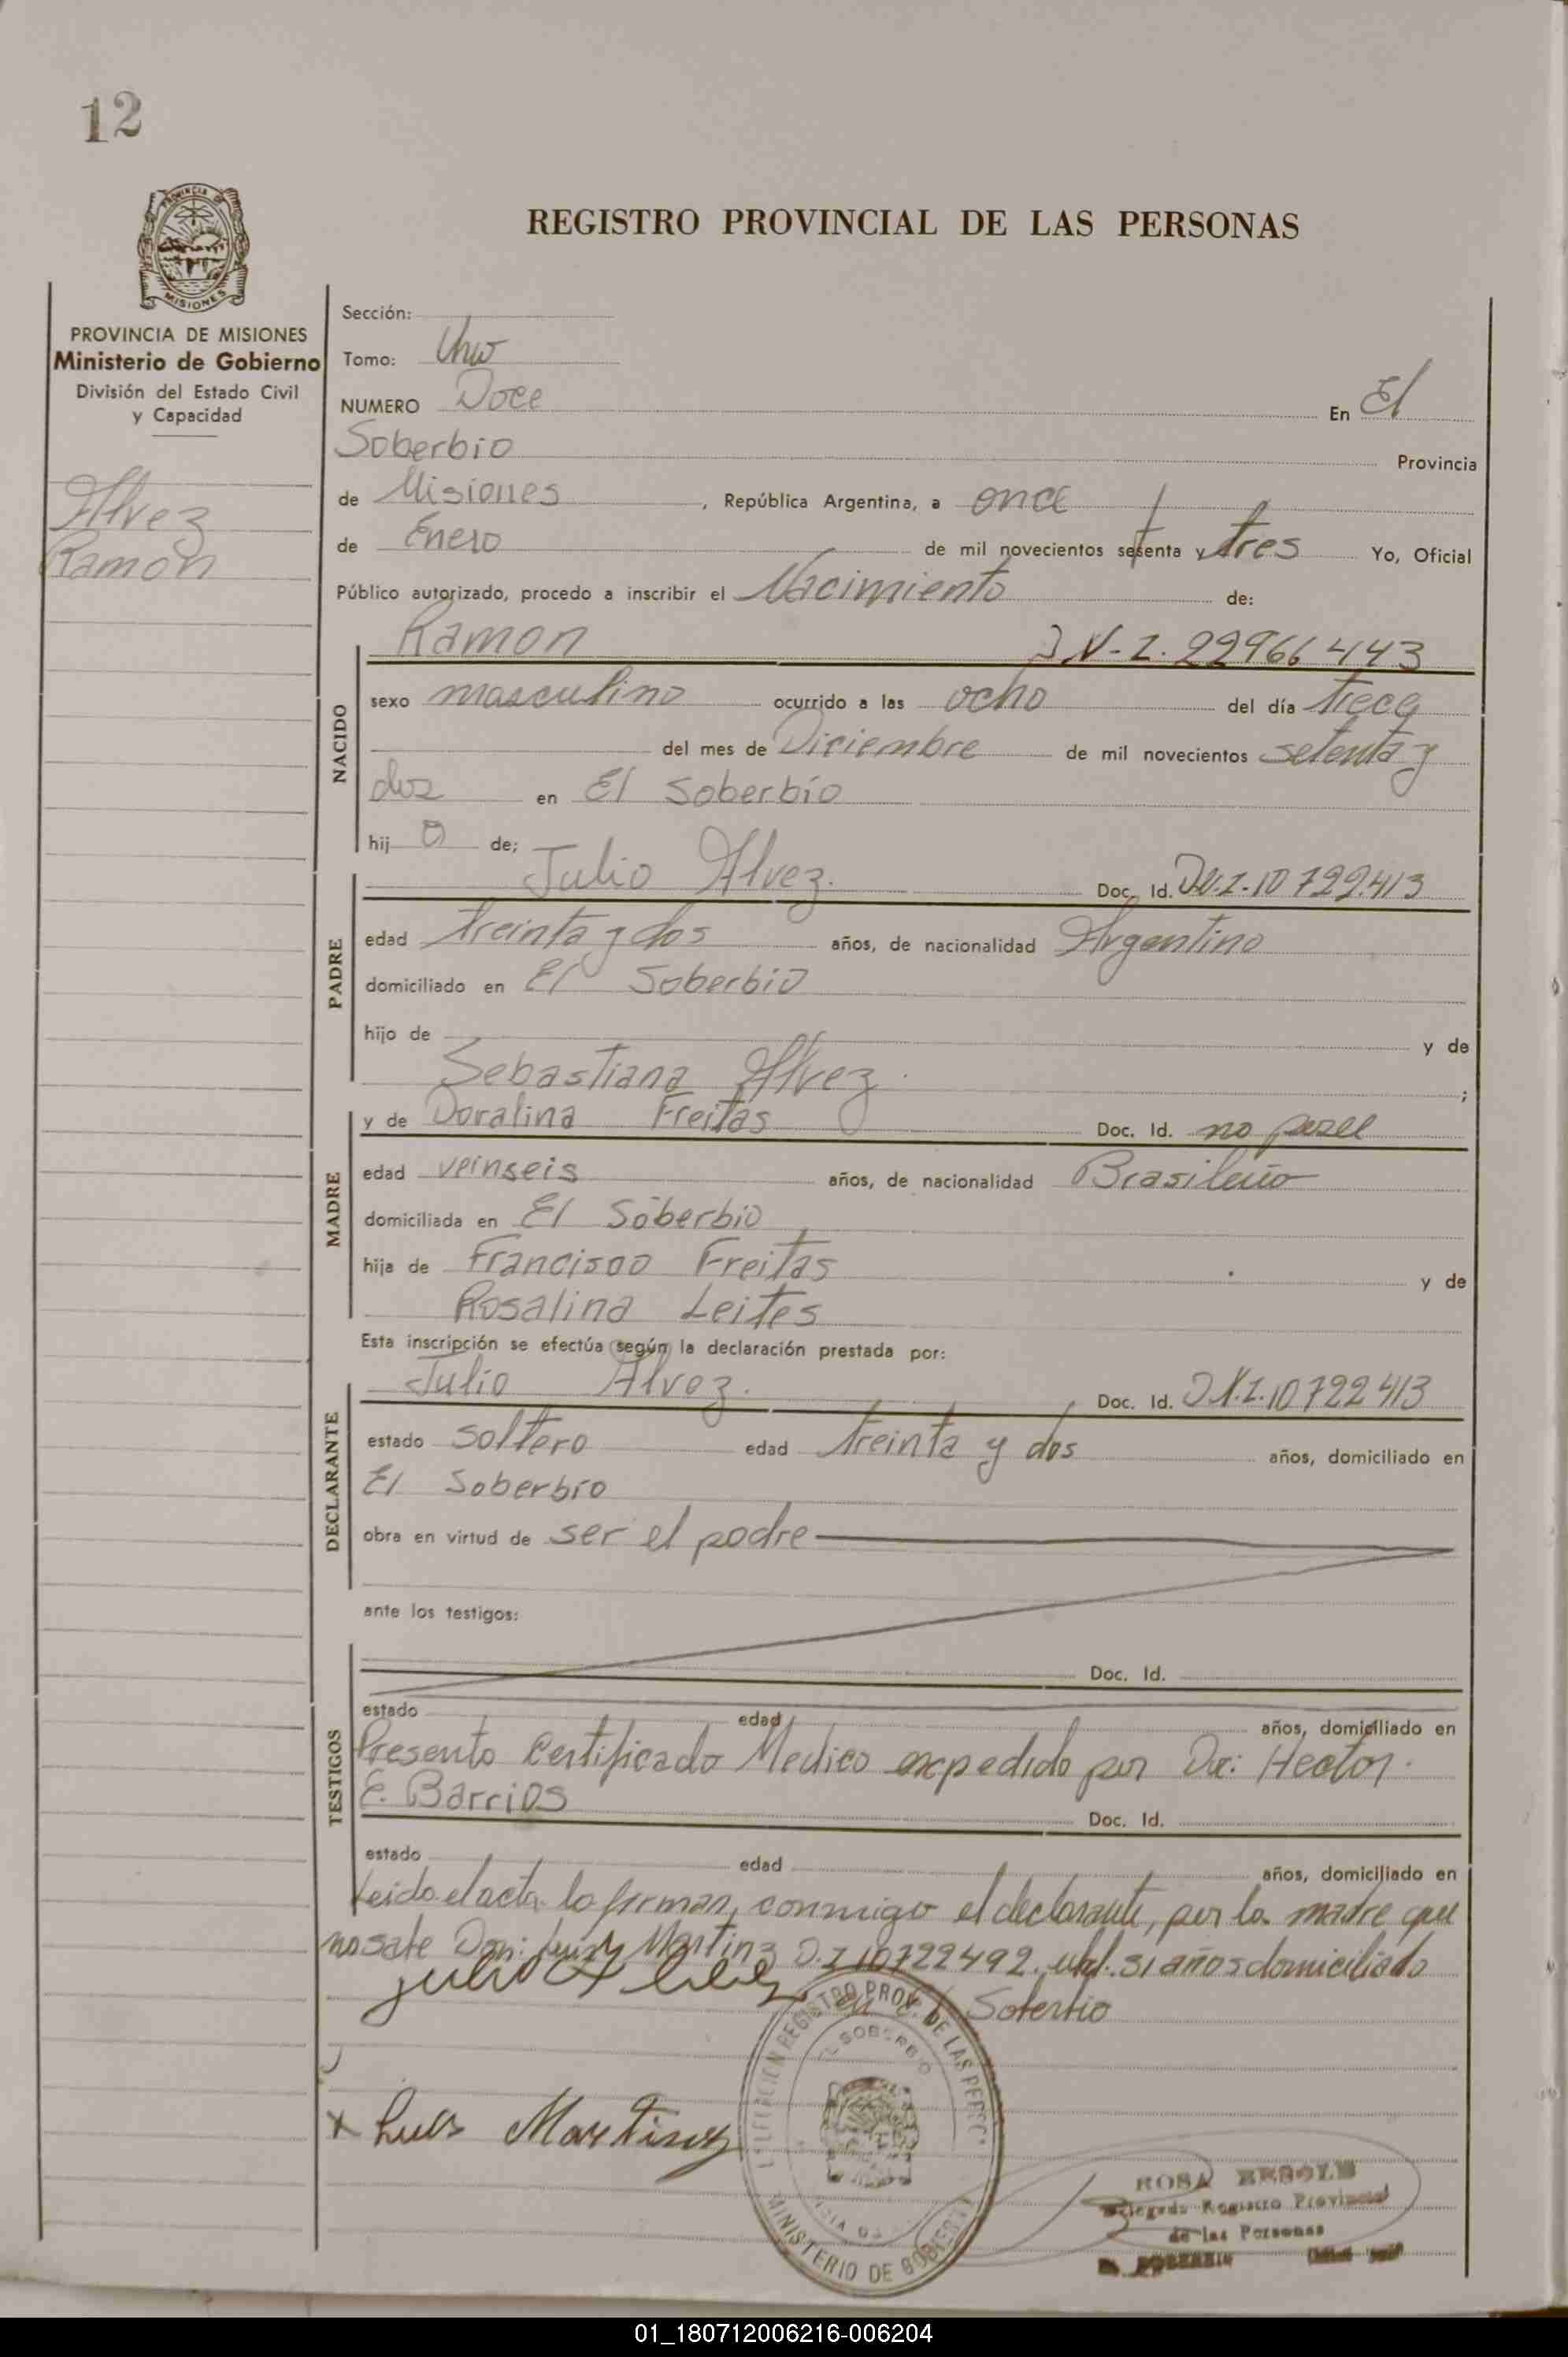 12
REGISTRO PROVINCIAL DE LAS PERSONAS
PROVINCIA DE MISIONES
Ministerio de Gobierno
División del Estado Civil
y Capacidad
Alvez
Ramon
Sección:
Tomo: Uno
NUMERO Doce En El
Soberbio Provincia
de Misiones, República Argentina, a once
de Enero de mil novecientos setenta y tres Yo, Oficial
Público autorizado, procedo a inscribir el Nacimiento de:
Ramon D.N.I. 22966443
NACIDO
sexo masculino ocurrido a las ocho del día trece
del mes de Diciembre de mil novecientos setenta y
dos en El Soberbio
hij o de;
Julio Alvez. Doc. Id. D.N.I-10722.413
PADRE
edad treinta y dos años, de nacionalidad Argentino
domiciliado en El Soberbio
hijo de y de
Sebastiana Alvez.;
y de Doralina Freitas Doc. Id. no posee
MADRE
edad veinseis años, de nacionalidad Brasileño
domiciliada en El Soberbio
hija de Francisco Freitas y de
Rosalina Leites
Esta inscripción se efectúa según la declaración prestada por:
Julio Alvez. Doc. Id. D.N.I.10722413
DECLARANTE
estado soltero edad treinta y dos años, domiciliado en
El Soberbio
obra en virtud de ser el padre
ante los testigos:
Doc. Id.
TESTIGOS
estado edad años, domiciliado en
Presento Certificado Medico expedido por Dr: Hector.
E. Barrios Doc. Id.
estado edad años, domiciliado en
Leido el acta lo firman, conmigo el declarante, por la madre que
no sabe Don: Luiz Martinz D.I 10722492. edad. 51 años domiciliado
en El Soberbio
Julio Alvez
x Luis Martinez
REGISTRO PROV. DE LAS PERSO
EL SOBERBIO
MINISTERIO DE GOBIERNO
ROSA
Delegada Registro Provincial
de las Personas
EL SOBERBIO
01_180712006216-006204